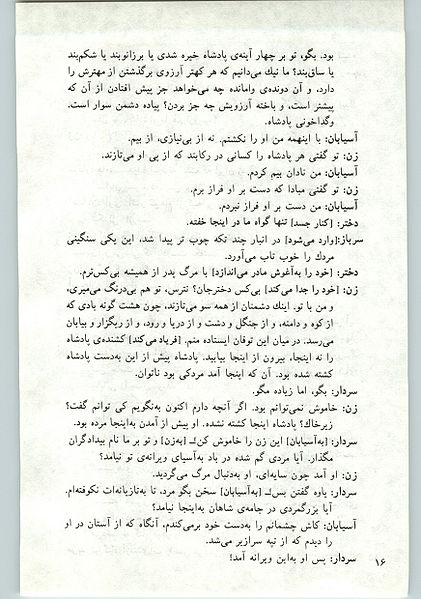 بود. بگو، تو بر چهار آینه‌ی پادشاه خیره شدی یا برزانوبند یا شکم‌بند
یا ساق‌بند؟ ما نیك می‌دانیم که هر کهتر آرزوی برگذشتن از مهترش را
دارد، و آن دونده‌ی وامانده چه می‌خواهد جز پیش افتادن از آن که
پیشتر است، و باخته آرزویش چه جز بردن؟ پیاده دشمن سوار است.
وگداخونی پادشاه.
آسیابان: با اینهمه من او را نکشتم. نه از بی‌نیازی، از بیم.
زن: تو گفتی هر پادشاه را کسانی در رکابند که از پی او می‌تازند.
آسیابان: من نادان بیم کردم.
زن: تو گفتی مبادا که دست بر او فراز برم.
آسیابان: من دست بر او فراز نبردم.
دختر: [کنار جسد] تنها گواه ما در اینجا خفته.
سرباز: [وارد می‌شود] در انبار چند تکه چوب تر پیدا شد، این یکی سنگینی
مردك را خوب تاب می‌آورد.
دختر: [خود را به‌آغوش مادر می‌اندازد] با مرگ پدر از همیشه بی‌کس‌ترم.
زن: [خود را جدا می‌کند] بی‌کس دخترجان؟ نترس، تو هم بی‌درنگ می‌میری،
و من با تو. اینك دشمنان از همه سو می‌تازند، چون هشت گونه بادی که
از کوه و دامنه، و از جنگل و دشت و از دریا و رود، و از ریگزار و بیابان
می‌رسد. در میان این توفان ایستاده منم. [فریاد می‌کند] کشنده‌ی پادشاه
را نه اینجا، بیرون از اینجا بیابید. پادشاه پیش از این به‌دست پادشاه
کشته شده بود. آن که اینجا آمد مردکی بود ناتوان.
سردار: بگو، اما زیاده مگو.
زن: خاموش نمی‌توانم بود. اگر آنچه دارم اکنون به‌نگویم کی توانم گفت؟
زیرخاك؟ پادشاه اینجا کشته نشده. او پیش از آمدن به‌اینجا مرده بود.
سردار: [به‌آسیابان] این زن را خاموش کن ـ [به‌زن] و تو بر ما نام بیدادگران
مگذار. آیا مردی گم شده در باد به‌آسیای ویرانه‌ی تو نیامد؟
زن: او آمد چون سایه‌ای، او به‌دنبال مرگ می‌گردید.
سردار: یاوه گفتن بس ـ [به‌آسیابان] سخن بگو مرد، تا به‌تازیانه‌ات نکوفته‌ام.
آیا بزرگمردی در جامه‌ی شاهان به‌اینجا نیامد؟
آسیابان: کاش چشمانم را به‌دست خود برمی‌کندم، آنگاه که از آستان در او
را دیدم که از تپه سرازیر می‌شد.
سردار: پس او به‌این ویرانه آمد!
۱۶